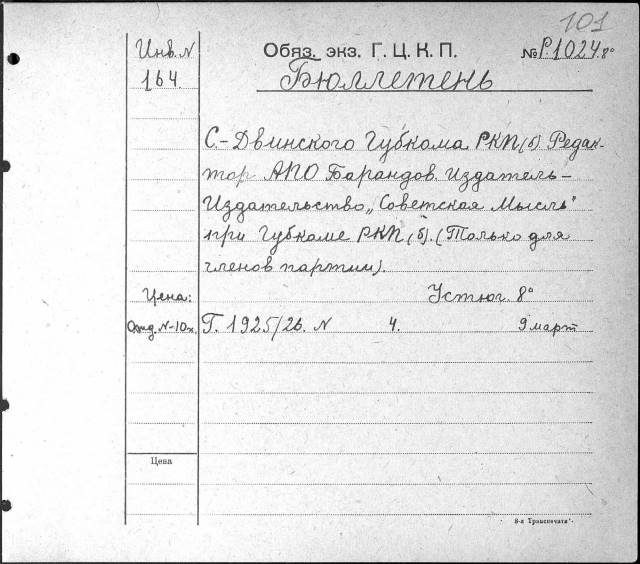 101
Инв. N
164
Обяз. экз. Г. Ц. К. П.
№ Р.1024. 8°
Бюллетень
С.-Двинского Губкома РКП(б) Редак-
тор АПО Барандов. Издатель-
Издательство „Советская Мысль"
при Губкоме РКП(б). (Только для
членов партии).
Цена:
Устюг. 8°
Отд. N-10к.
Г. 1925/26. N 4. 9 март
Цена
8-я Транспечати